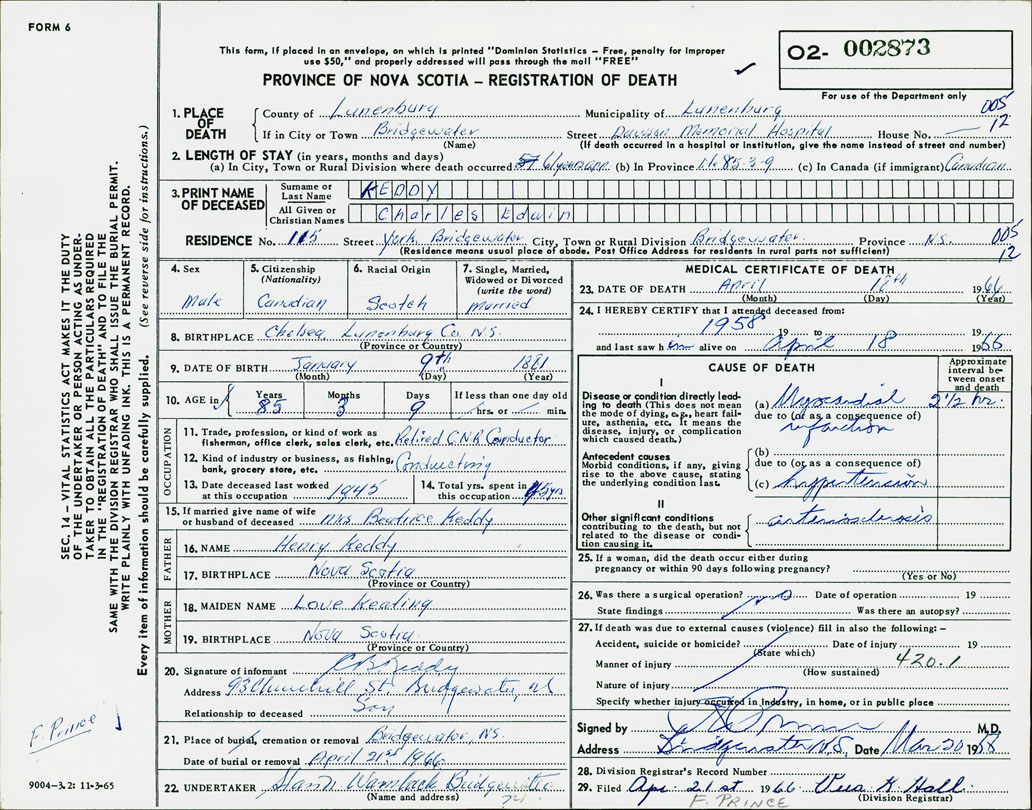 FORM 6
This form, if placed in an envelope, on which is printed "Dominion Statistics – Free, penalty for improper
use $50," and properly addressed will pass through the mail "FREE"
PROVINCE OF NOVA SCOTIA – REGISTRATION OF DEATH
O2- 002873
For use of the Department only
005
12
1. PLACE OF DEATH
County of Lunenburg Municipality of Lunenburg
If in City or Town Bridgewater Street Dawson Memorial Hospital House No.
(Name) (If death occurred in a hospital or institution, give the name instead of street and number)
2. LENGTH OF STAY (in years, months and days)
(a) In City, Town or Rural Division where death occurred (b) In Province 85-3-9 (c) In Canada (if immigrant) Canadian
3. PRINT NAME OF DECEASED
Surname or Last Name KEDDY
All Given or Christian Names Charles Edwin
RESIDENCE No. 115 Street York, Bridgewater City, Town or Rural Division Bridgewater Province N.S.
(Residence means usual place of abode. Post Office Address for residents in rural parts not sufficient)
005
12
4. Sex
Male
5. Citizenship
(Nationality)
Canadian
6. Racial Origin
Scotch
7. Single, Married,
Widowed or Divorced
(write the word)
married
8. BIRTHPLACE Chelsea, Lunenburg Co. N.S.
(Province or Country)
9. DATE OF BIRTH January 9th 1881
(Month) (Day) (Year)
10. AGE in
Years Months Days If less than one day old
85 3 9 hrs. or min.
OCCUPATION
11. Trade, profession, or kind of work as
fisherman, office clerk, sales clerk, etc. Retired C.N.R. Conductor
12. Kind of industry or business, as fishing,
bank, grocery store, etc. Conducting
13. Date deceased last worked
at this occupation 1945
14. Total yrs. spent in
this occupation 45 yrs
15. If married give name of wife
or husband of deceased Mrs Beatrice Keddy
FATHER
16. NAME Henry Keddy
17. BIRTHPLACE Nova Scotia
(Province or Country)
MOTHER
18. MAIDEN NAME Love Keating
19. BIRTHPLACE Nova Scotia
(Province or Country)
20. Signature of informant C B Keddy
Address 93 Churchill St. Bridgewater, NS
Relationship to deceased Son
21. Place of burial, cremation or removal Bridgewater, N.S.
Date of burial or removal April 21st 1966
22. UNDERTAKER Bridgewater
(Name and address)
MEDICAL CERTIFICATE OF DEATH
23. DATE OF DEATH April 18th 1966
(Month) (Day) (Year)
24. I HEREBY CERTIFY that I attended deceased from:
1958 19 to 19
and last saw him alive on April 18 1966
CAUSE OF DEATH
Approximate
interval be-
tween onset
and death
I
Disease or condition directly lead-
ing to death (This does not mean
the mode of dying, e.g., heart fail-
ure, asthenia, etc. It means the
disease, injury, or complication
which caused death.)
(a) Myocardial 2 1/2 hr.
due to (or as a consequence of)
infarction
Antecedent causes
Morbid conditions, if any, giving
rise to the above cause, stating
the underlying condition last.
(b)
due to (or as a consequence of)
(c) hypertension
II
Other significant conditions
contributing to the death, but not
related to the disease or condi-
tion causing it.
arteriosclerosis
25. If a woman, did the death occur either during
pregnancy or within 90 days following pregnancy?
(Yes or No)
26. Was there a surgical operation? no Date of operation 19
State findings Was there an autopsy?
27. If death was due to external causes (violence) fill in also the following: –
Accident, suicide or homicide? Date of injury 19
(State which)
Manner of injury 420.1
(How sustained)
Nature of injury
Specify whether injury occurred in Industry, in home, or in public place
Signed by M.D.
Address Bridgewater N.S. Date Mar 20 19
28. Division Registrar's Record Number
29. Filed Apr. 21st 1966 Hall
F. PRINCE (Division Registrar)
SEC. 14 – VITAL STATISTICS ACT MAKES IT THE DUTY
OF THE UNDERTAKER OR PERSON ACTING AS UNDER-
TAKER TO OBTAIN ALL THE PARTICULARS REQUIRED
IN THE "REGISTRATION OF DEATH" AND TO FILE THE
SAME WITH THE DIVISION REGISTRAR WHO SHALL ISSUE THE BURIAL PERMIT.
WRITE PLAINLY WITH UNFADING INK. THIS IS A PERMANENT RECORD.
Every item of information should be carefully supplied. (See reverse side for instructions.)
F. Prince
9004-3.2: 11-3-65